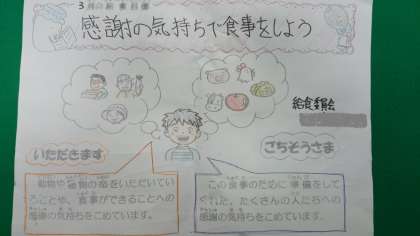 3月の給食目標
感謝の気持ちで食事をしよう
給食委員会
いただきます
ごちそうさま
動物や植物の命をいただいてい
ることや、食事ができることへの
感謝の気持ちをこめています。
この食事のために準備をして
くれた、たくさんの人たちへの
感謝の気持ちをこめています。